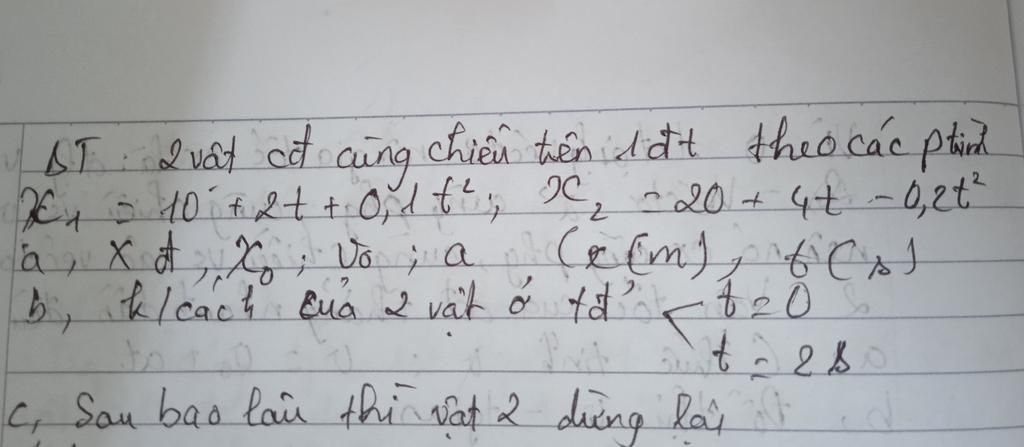 BT : 2 vật cđ cùng chiều trên 1 đt theo các ptrình
x₁ = 10 + 2t + 0,1t²; x₂ = 20 + 4t - 0,2t²
a, xđ, x₀; v₀; a (x(m), t(s)
b, k/cách của 2 vật ở tđ t = 0
t = 2s
c, Sau bao lâu thì vật 2 dừng lại